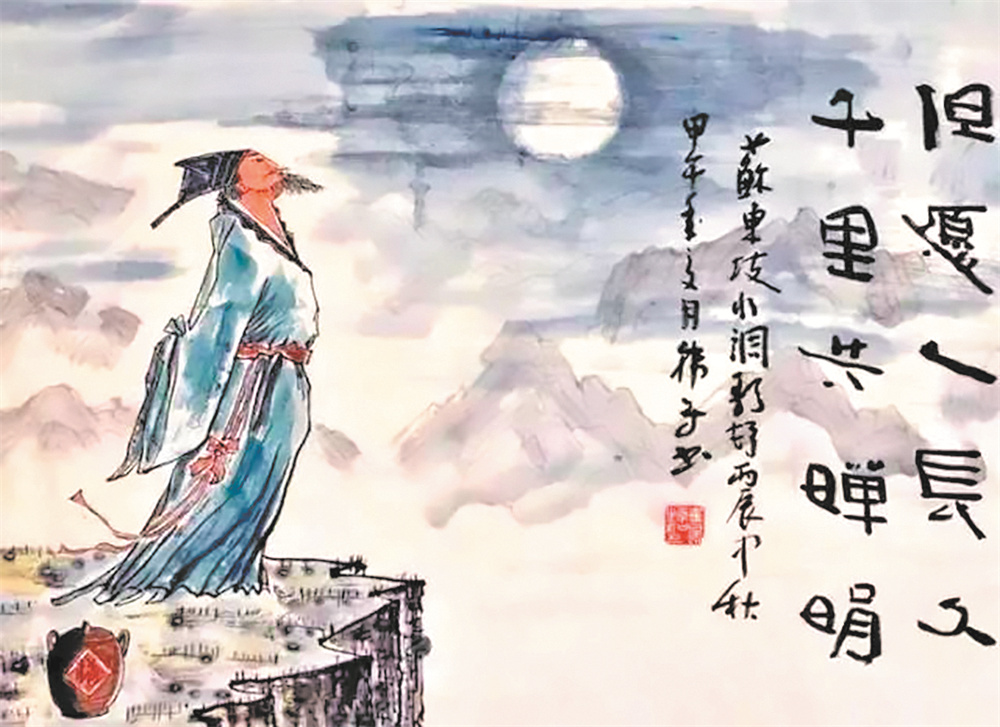 但愿人長久
千里共嬋娟
蘇東坡水調歌頭丙辰中秋
甲午月子书